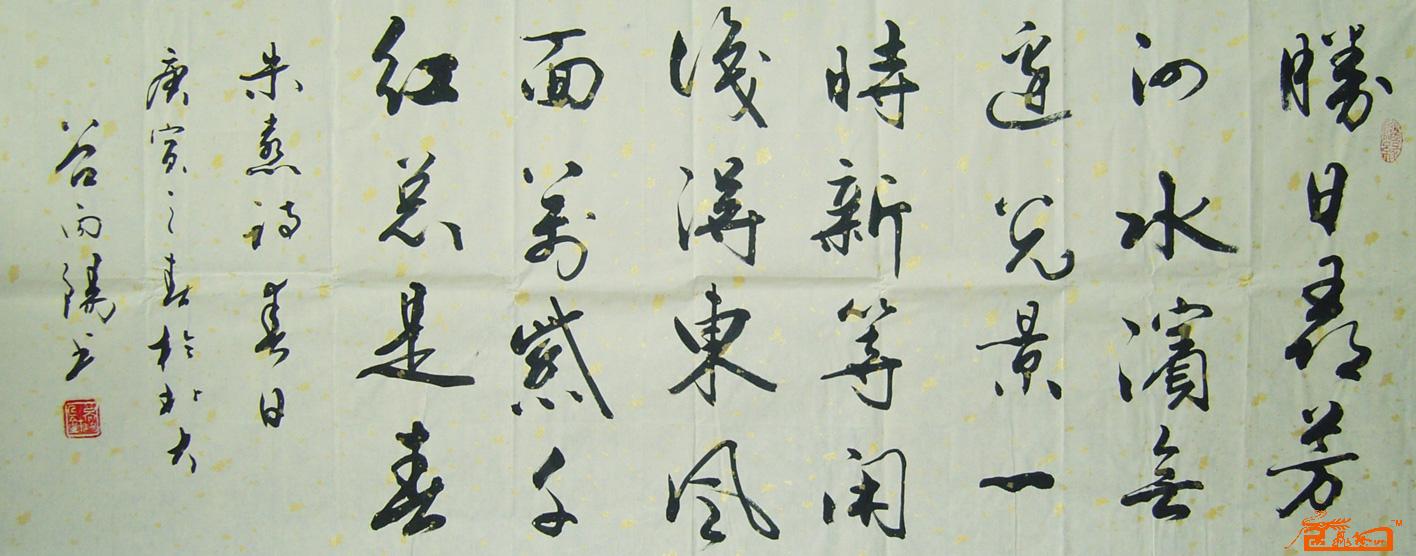 勝日尋芳
泗水濱無
邊光景一
時新等閑
識得東風
面萬紫千
紅總是春
朱熹詩春日
庚寅之春於北大
谷向陽书